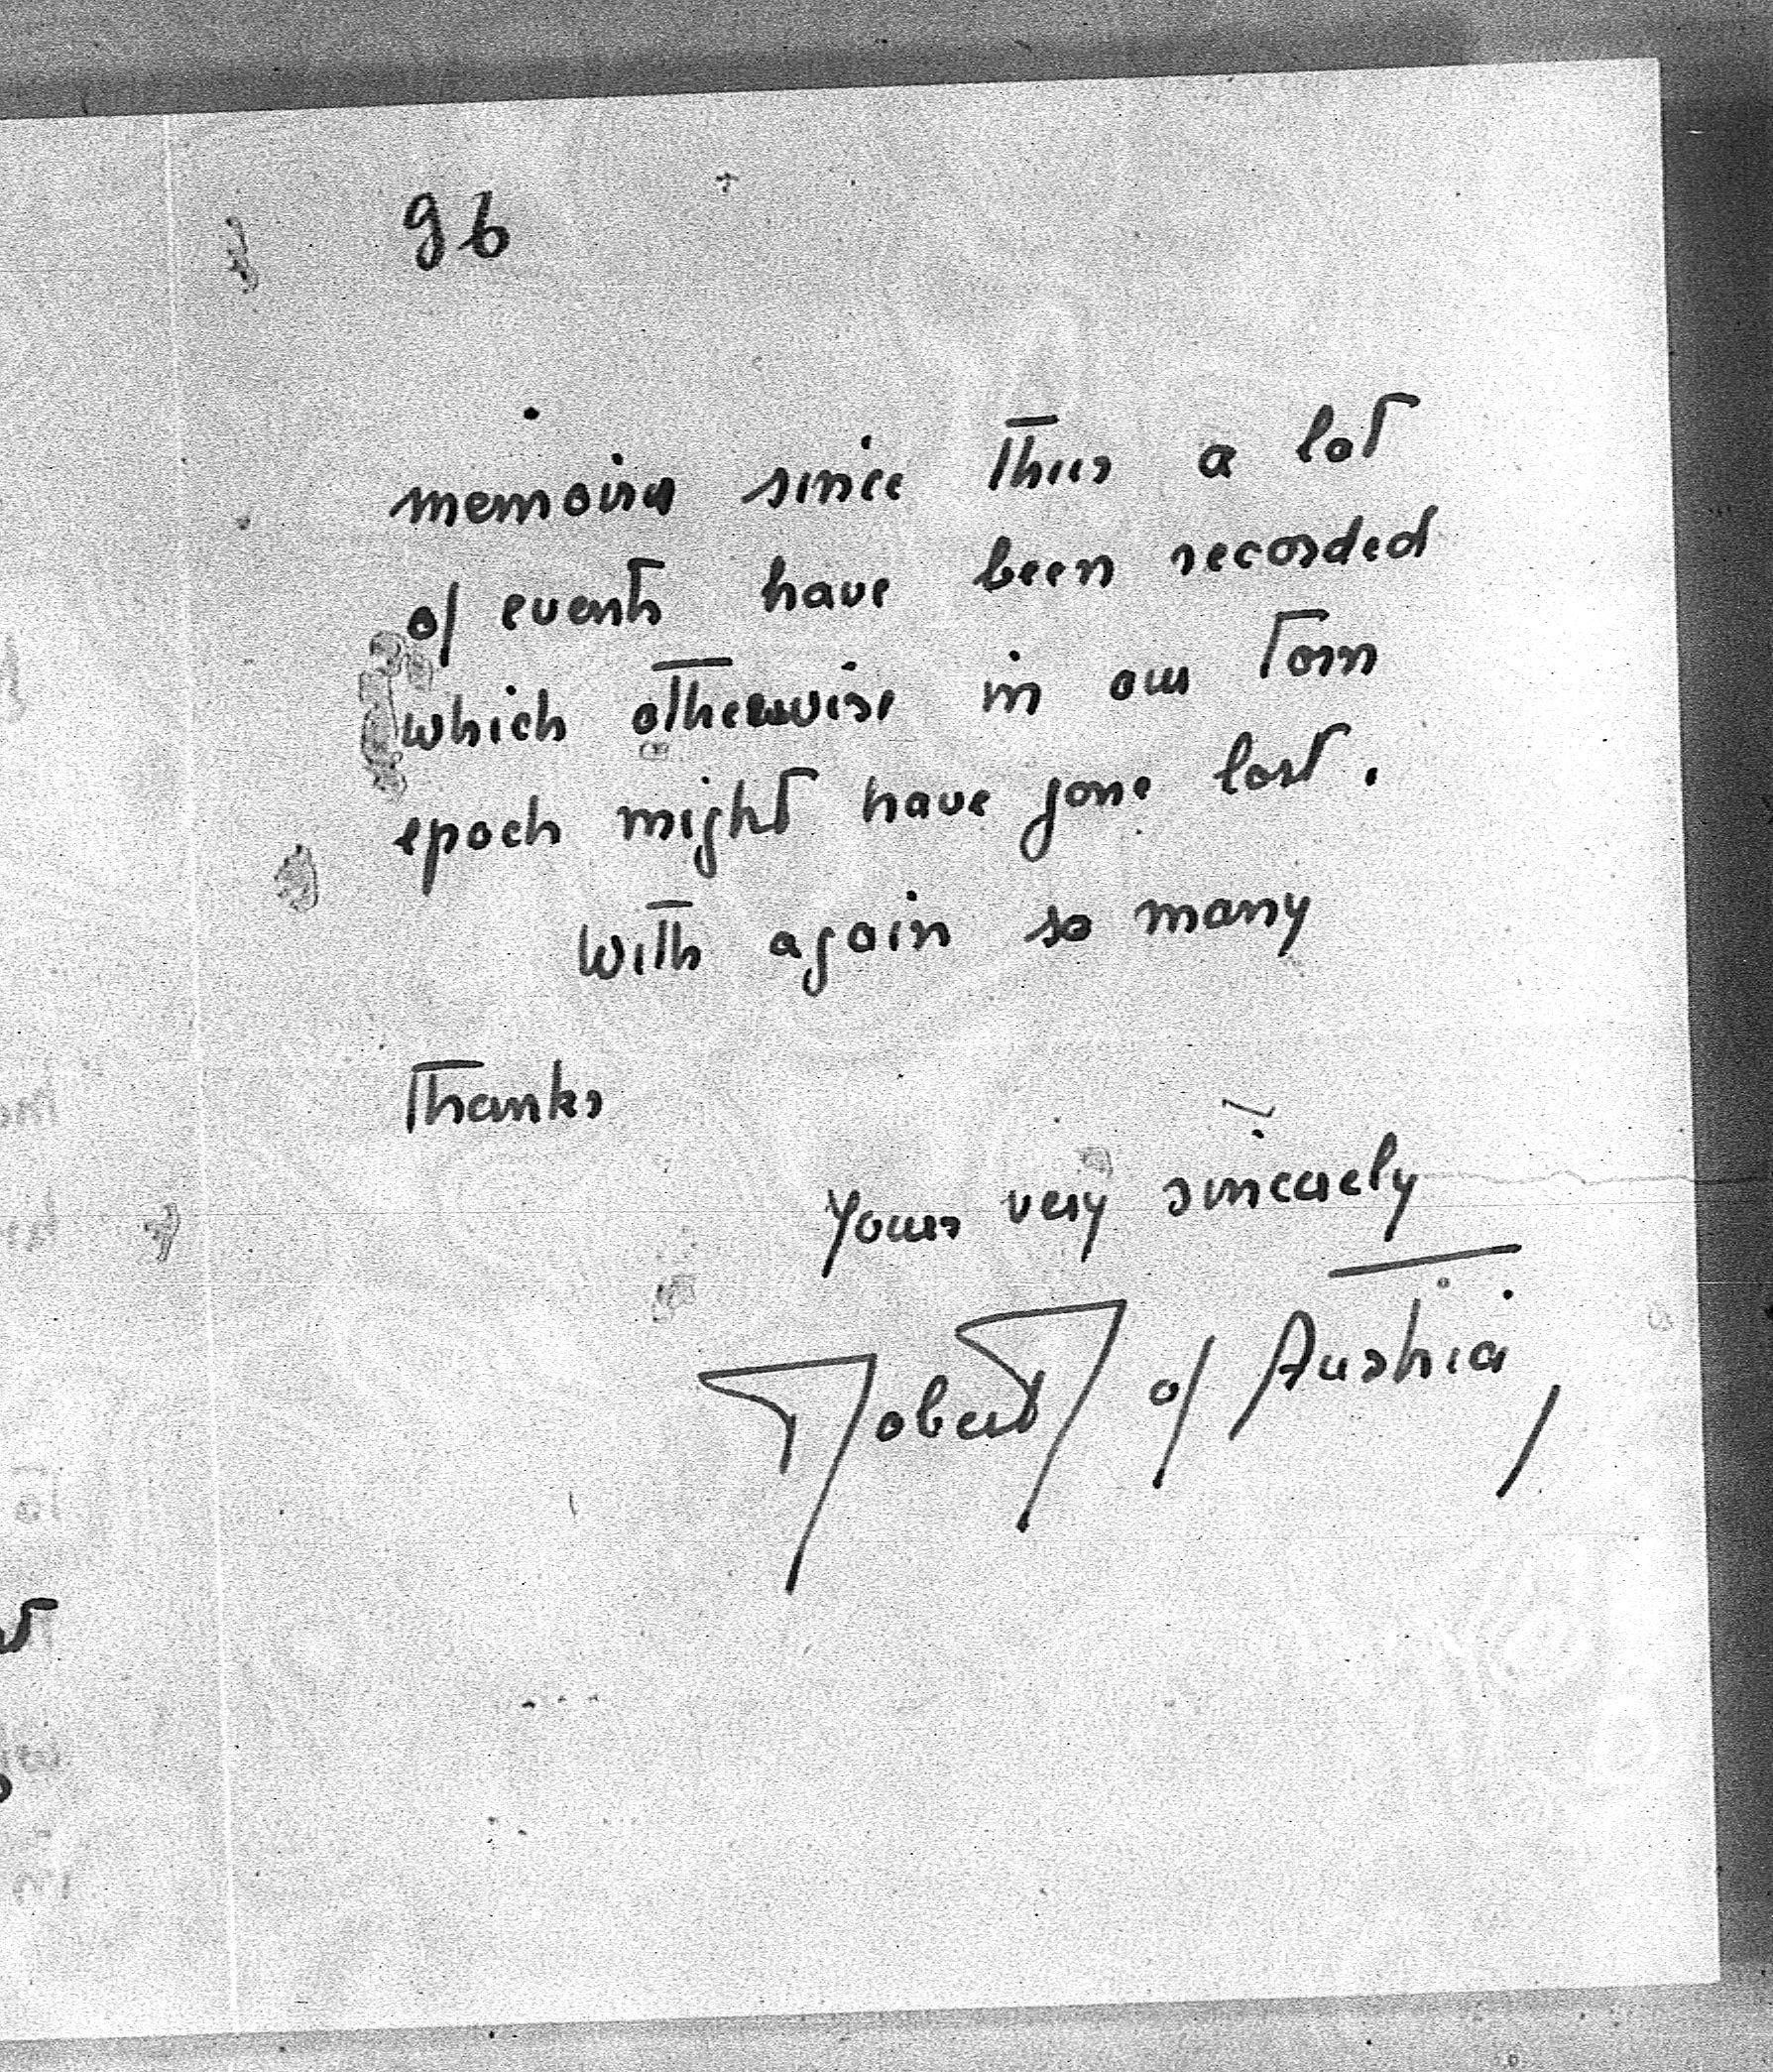 96
memoirs since thus a lot
of events have been recorded
which otherwise in our torn
epoch might have gone lost.
With again so many
Thanks
Yours very sincerely
Robert of Austria